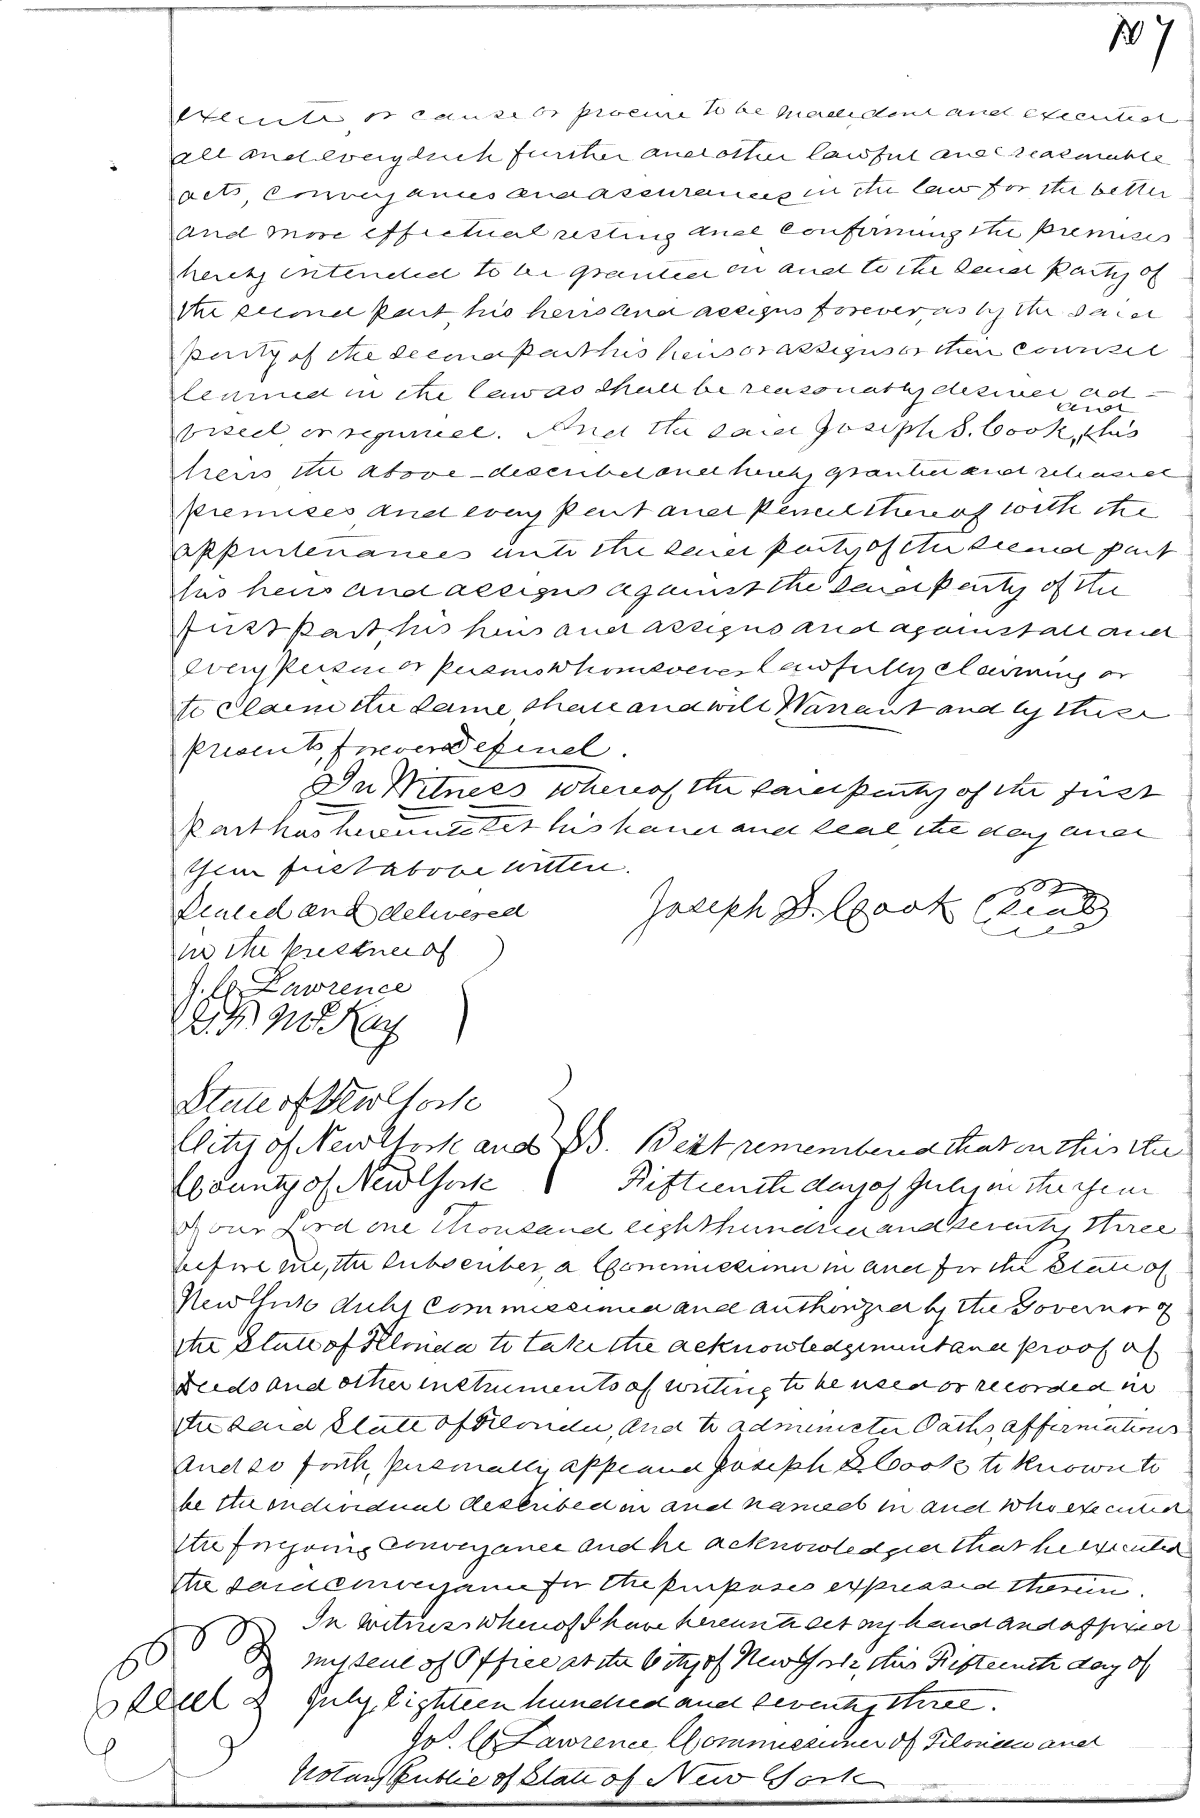 107
execute, or cause or procure to be made, done and executed
all and every such further and other lawful and reasonable
acts, conveyances and assurances in the law for the better
and more effectual vesting and confirming the premises
hereby intended to be granted in and to the said party of
the second part, his heirs and assigns forever, as by the said
party of the second part his heirs or assigns or their counsel
learned in the law as shall be reasonably desired, ad-
vised, or required. And the said Joseph S. Cook, and his
heirs, the above-described and hereby granted and released
premises, and every part and parcel thereof with the
appurtenances unto the said party of the second part
his heirs and assigns against the said party of the
first part, his heirs and assigns and against all and
every person or persons whomsoever lawfully claiming or
to claim the same, shall and will Warrant and by these
presents, forever Defend.
In Witness whereof the said party of the first
part has hereunto set his hand and seal, the day and
year first above written.
Sealed and delivered
in the presence of
Joseph S. Cook Seal
J. C. Lawrence
McKay
State of New York
City of New York and SS. Be it remembered that on this the
County of New York Fifteenth day of July, in the year
of our Lord one thousand eight hundred and seventy three
before me, the subscriber, a Commissioner in and for the State of
New York duly commissioned and authorized by the Governor of
the State of Florida to take the acknowledgement and proof of
Deeds and other instruments of writing to be used or recorded in
the said State of Florida, and to administer Oaths, affirmations
and so forth, personally appeared Joseph S. Cook to known to
be the individual described in and named in and who executed
the foregoing conveyance and he acknowledged that he executed
the said conveyance for the purposes expressed therein.
In witness whereof I have hereunto set my hand and affixed
my seal of Office at the City of New York, this Fifteenth day of
Seal July, Eighteen hundred and seventy three.
Jos. C. Lawrence Commissioner of Florida and
Notary Public of State of New York